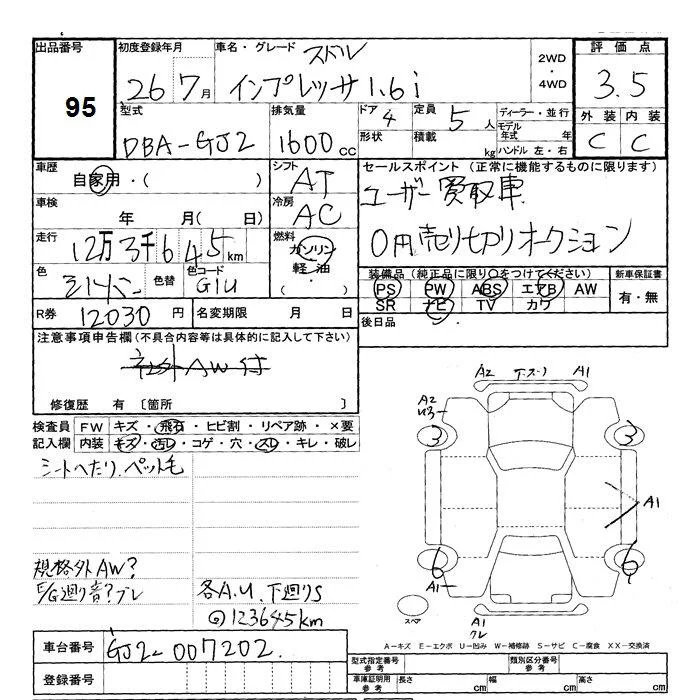 出品番号 初度登録年月 車名・グレード スバル 2WD・4WD 評価点
95 26 7月 インプレッサ 1.6i 3.5
型式 排気量 ドア 4 定員 5人 ディーラー・並行 外装 内装
DBA-GJ2 1600cc 形状 積載 kg モデル年式 年 C C
ハンドル 左・右
車歴 シフト セールスポイント(正常に機能するものに限ります)
自家用・( ) AT ユーザー買取車
車検 冷房
年 月( 日) AC 0円売り切りオークション
走行 燃料
12万3千645km ガソリン
色 色替 色コード 軽油 装備品(純正品に限り○をつけてください) 新車保証書
G1U ・( PS PW ABS エアB AW 有・無
SR ナビ TV カワ
R券 12030円 名変期限 月 日 後日品
注意事項申告欄(不具合内容等は具体的に記入して下さい)
社外AW付
修復歴 有 〔箇所 〕
検査員 FW キズ・飛石・ヒビ割・リペア跡・×要
記入欄 内装 キズ・汚レ・コゲ・穴・スレ・キレ・破レ
シートへたり、ペット毛
規格外AW?
E/G廻り音?ブレ
各A.U、下廻りS
123645km
A2 A1
A2
3 3
A1
6 6
A1
スペア A1
A-キズ E-エクボ U-凹み W-補修跡 S-サビ C-腐食 XX-交換済
車台番号 GJ2-007202 型式指定番号 参考 類別区分番号 参考
登録番号 車庫証明用 参考 長さ cm 幅 cm 高さ cm